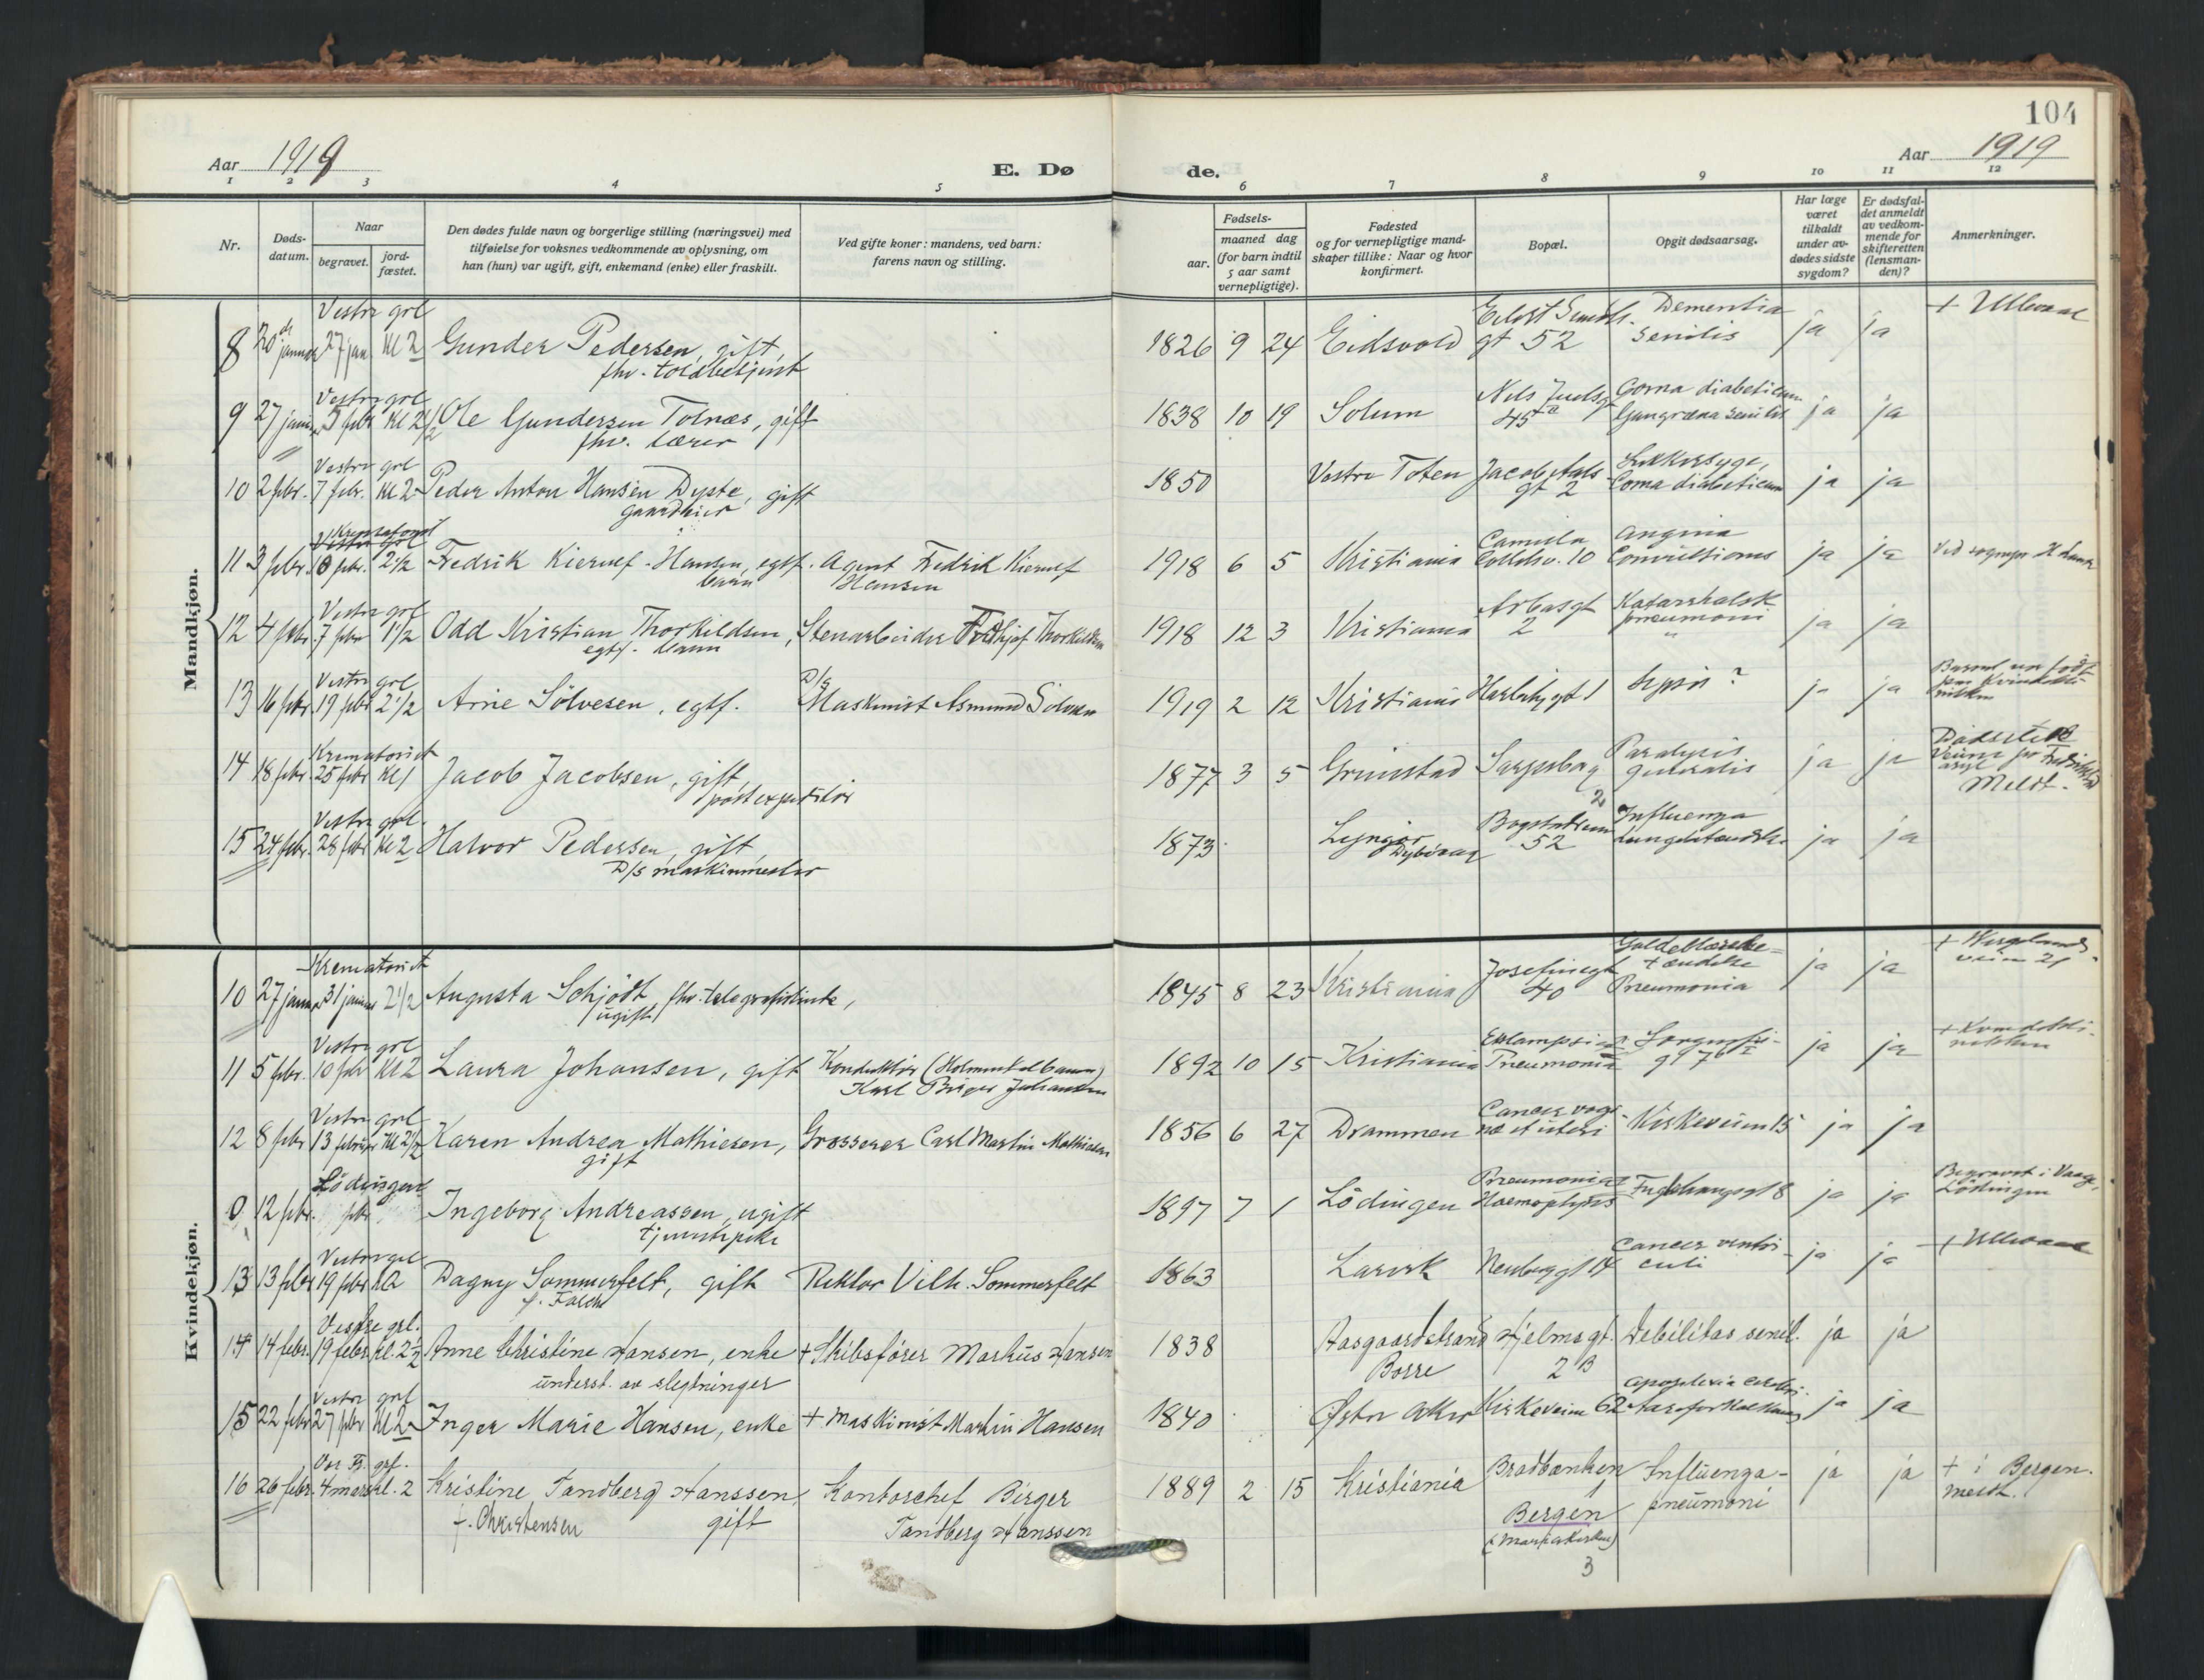 104
Aar 1919
E. Døde.
Aar 1919
1 2 3 4 5 6 7 8 9 10 11 12
Nr.
Døds-datum.
Naar
begravet.
jord-fæstet.
Den dødes fulde navn og borgerlige stilling (næringsvei) med
tilføielse for voksnes vedkommende av oplysning, om
han (hun) var ugift, gift, enkemand (enke) eller fraskilt.
Ved gifte koner: mandens, ved barn:
farens navn og stilling.
Fødsels-
aar.
maaned dag
(for barn indtil
5 aar samt
vernepligtige).
Fødested
og for vernepligtige mand-
skaper tillike: Naar og hvor
konfirmert.
Bopæl.
Opgit dødsaarsag.
Har læge
været
tilkaldt
under av-
dødes sidste
sygdom?
Er dødsfal-
det anmeldt
av vedkom-
mende for
skifteretten
(lensman-
den)?
Anmerkninger.
Mandkjøn.
Vestre grl
8 20 januar 27 jan Kl 2 Gunder Pedersen, gift, 1826 9 24 Eidsvold Eilert Sundts gt 52 Dementia senilis ja ja + Ullevaal
fhv. toldbetjent
Vestre grl
9 27 januar 3 febr Kl 2 1/2 Ole Gundersen Tolnæs, gift 1838 10 19 Solum Nils Juels gt 45 a Coma diabeticum Gangræna senilis ja ja
fhv. lærer
Vestre grl
10 2 febr. 7 febr. Kl 2 Peder Anton Hansen Dyste, gift 1850 Vestre Toten Jacob Aals gt 2 Sukkersyge, Coma diabeticum ja ja
gaardeier
Krematoriet
Vestre grl
11 3 febr. 10 febr. 2 1/2 Fredrik Kierulf-Hansen, egtf. barn Agent Fredrik Kierulf Hansen 1918 6 5 Kristiania Camilla Colletsv. 10 Angina Convultions ja ja Ved sognepr
Vestre grl
12 4 febr. 7 febr 1 1/2 Odd Kristian Thorkildsen, Stenarbeider Fridthjof Thorkildsen 1918 12 3 Kristiania Arbosgt 2 Katarrhalsk pneumoni ja ja
egtf. barn
Vestre grl
13 16 febr. 19 febr 2 1/2 Arne Sölvesen, egtf. D/s Maskinist Asmund Sölvesen 1919 2 12 Kristiania Harbitzgt 1 Sepsis? ja ja Barnet var født paa Kvindeklinikken
Krematoriet
14 18 febr. 25 febr Kl 1 Jacob Jacobsen, gift, 1877 3 5 Grimstad Sarpsborg Paralysis generalis ja ja Dødssted Veum asyl pr Fredrikstad Meldt.
postexpeditör
Vestre grl.
15 24 febr. 28 febr Kl 2 Halvor Pedersen, gift, 1873 Lyngør Dybvaag Bogstadveien 52 Influenza Lungebetændelse ja ja
D/s maskinmester
Kvindekjøn.
Krematoriet
10 27 januar 31 januar 2 1/2 Augusta Schjödt, fhv. telegrafistinde, 1845 8 23 Kristiania Josefinegt 40 Galdeblærebetændelse Pneumonia ja ja + Wergelandsveien 21
ugift
Vestre grl
11 5 febr. 10 febr Kl 2 Laura Johansen, gift Konduktör (Holmenkolbanen) Karl Birger Johansen 1892 10 15 Kristiania Eklampsia Pneumonia Sorgenfrigt 7 ja ja + Kvindeklinikken
Vestre grl
12 8 febr 13 februar Kl 2 1/2 Karen Andrea Mathiesen, Grosserer Carl Martin Mathiesen 1856 6 27 Drammen Cancer vaginæ et uteri Kirkeveien 15 ja ja
gift
Lödingen
0 12 febr. febr Ingeborg Andreassen, ugift 1897 7 1 Lödingen Pneumonia Haemoptysis Fuglehaugsgt 8 ja ja Begravet i Lödingen
tjenestepike
Vestre grl
13 13 febr 19 febr Dagny Sommerfelt, gift Rektor Vilh. Sommerfelt 1863 Larvik Neuberggt 14 Cancer ventriculi ja ja + Ullevaal
f. Falch
Vestre grl.
14 14 febr. 19 febr. kl. 2 1/2 Anne Christine Hansen, enke + Skibsfører Markus Hansen 1838 Aasgaardstrand Borre Hjelmsgt. 2 B Debilitas senil. ja ja
underst. av slegtninger
Vestre grl
15 22 febr 27 febr Kl 2 Inger Marie Hansen, enke + Maskinist Martin Hansen 1840 Østre Aker Kirkeveien 62 Apoplexia cerebri Aareforkalkning ja ja
Vor Fr. grl.
16 26 febr. 4 mars kl. 2 Kristine Tandberg Hanssen, Kontorchef Birger Tandberg Hanssen 1889 2 15 Kristiania Bradbænken 1 Bergen (Mariakirken) Influenza-pneumoni ja ja + i Bergen. meldt.
f. Christensen gift
3